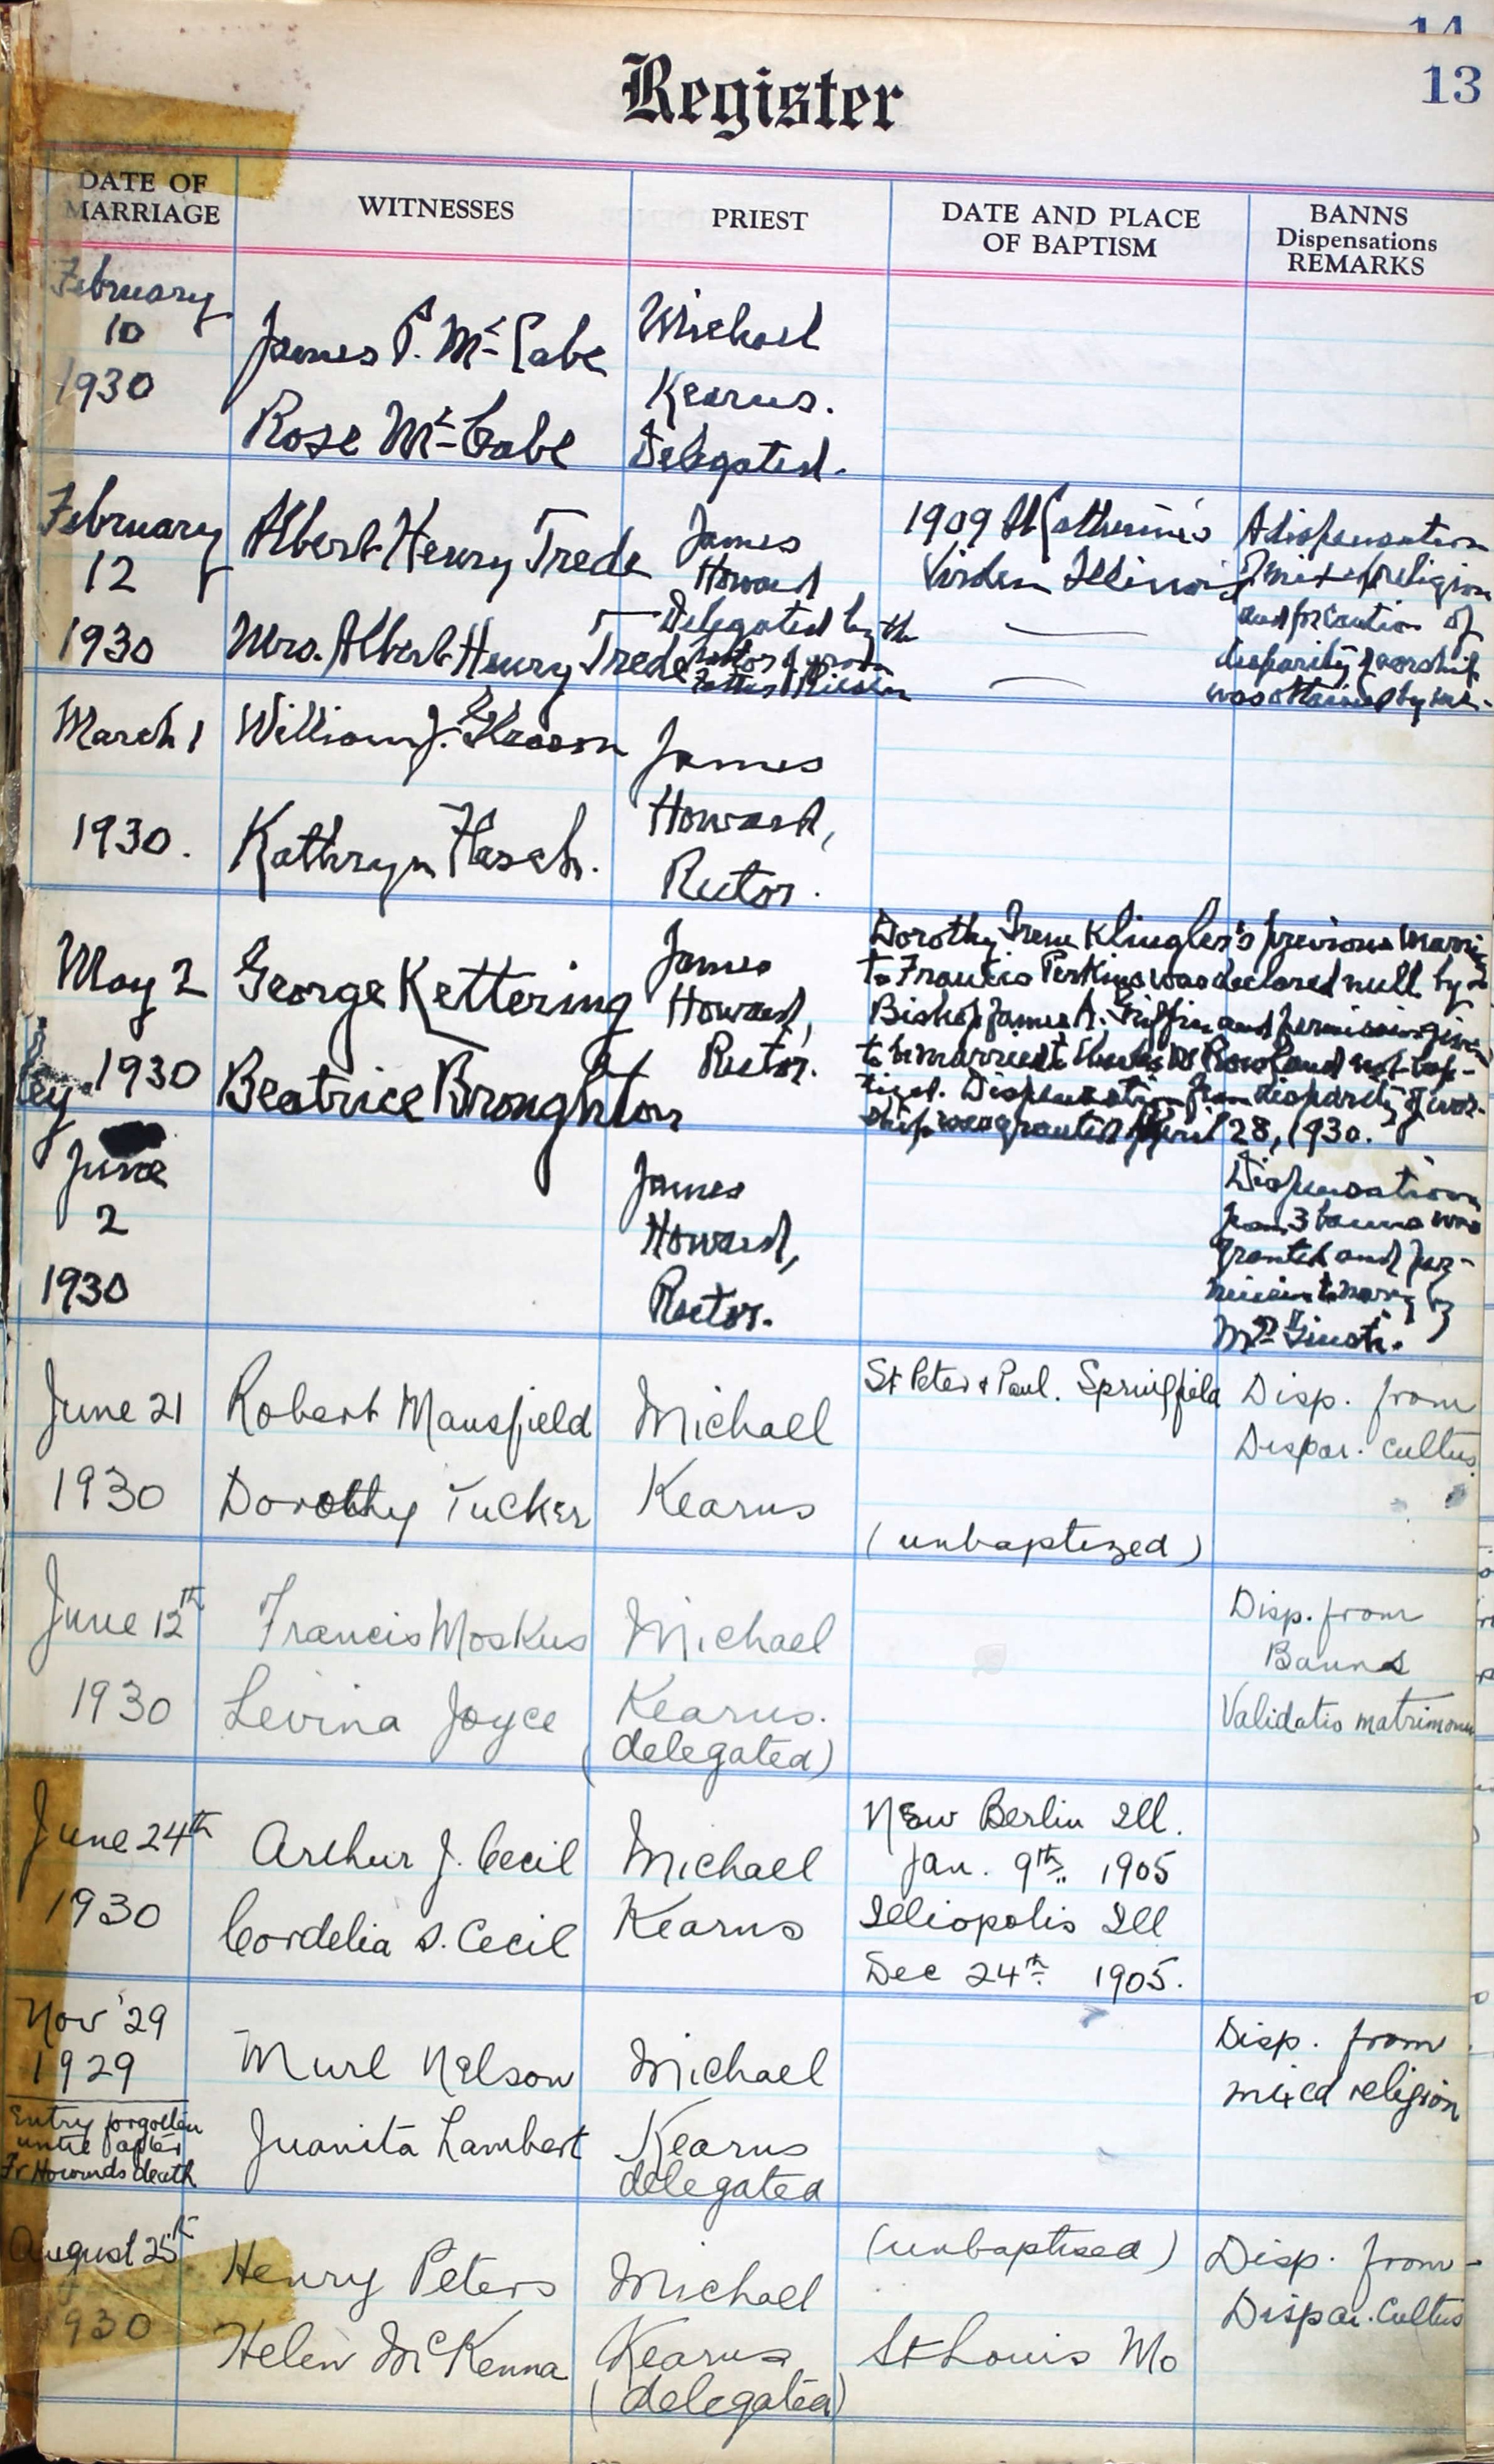 14
Register
13
DATE OF
MARRIAGE
WITNESSES
PRIEST
DATE AND PLACE
OF BAPTISM
BANNS
Dispensations
REMARKS
February
10
1930
James P. McCabe
Rose McCabe
Michael
Kearns.
Delegated.
February
12
1930
Albert Henry Trede
Mrs. Albert Henry Trede
James
Howard
Delegated by the
Father
1909 St Catherine's
Virden Illinois
A dispensation
mixed religion
and precaution of
disparity of worship
was obtained by me.
March 1
1930.
William J. Groom
Kathryn Flesch.
James
Howard,
Rector.
May 2
1930
George Kettering
Beatrice Broughton
James
Howard,
Rector.
Dorothy Irene Klingler's previous marri
to Francis Perkins was declared null by
Bishop James A. Griffin and permission given
to be married to Rowland not bap-
tized. Dispensation from disparity of wor-
ship was granted April 28, 1930.
ey
June
2
1930
James
Howard,
Rector.
Dispensation
from 3 banns was
granted and per-
mission to marry by
Mr
June 21
1930
Robert Mansfield
Dorothy Tucker
Michael
Kearns
St Peter & Paul. Springfield
(unbaptized)
Disp. from
Dispar. cultus.
June 12th
1930
Francis Moskus
Levina Joyce
Michael
Kearns.
(delegated)
Disp. from
Banns
Validatio matrimonii
June 24th
1930
Arthur J. Cecil
Cordelia S. Cecil
Michael
Kearns
New Berlin Ill.
Jan. 9th 1905
Illiopolis Ill
Dec 24th 1905.
Nov '29
1929
Entry forgotten
until after
Fr Howards death
Murl Nelson
Juanita Lambert
Michael
Kearns
delegated
Disp. from
mixed religion
August 25th
1930
Henry Peters
Helen McKenna
Michael
Kearns
(delegated)
(unbaptised)
St Louis Mo
Disp. from
Dispar. Cultus